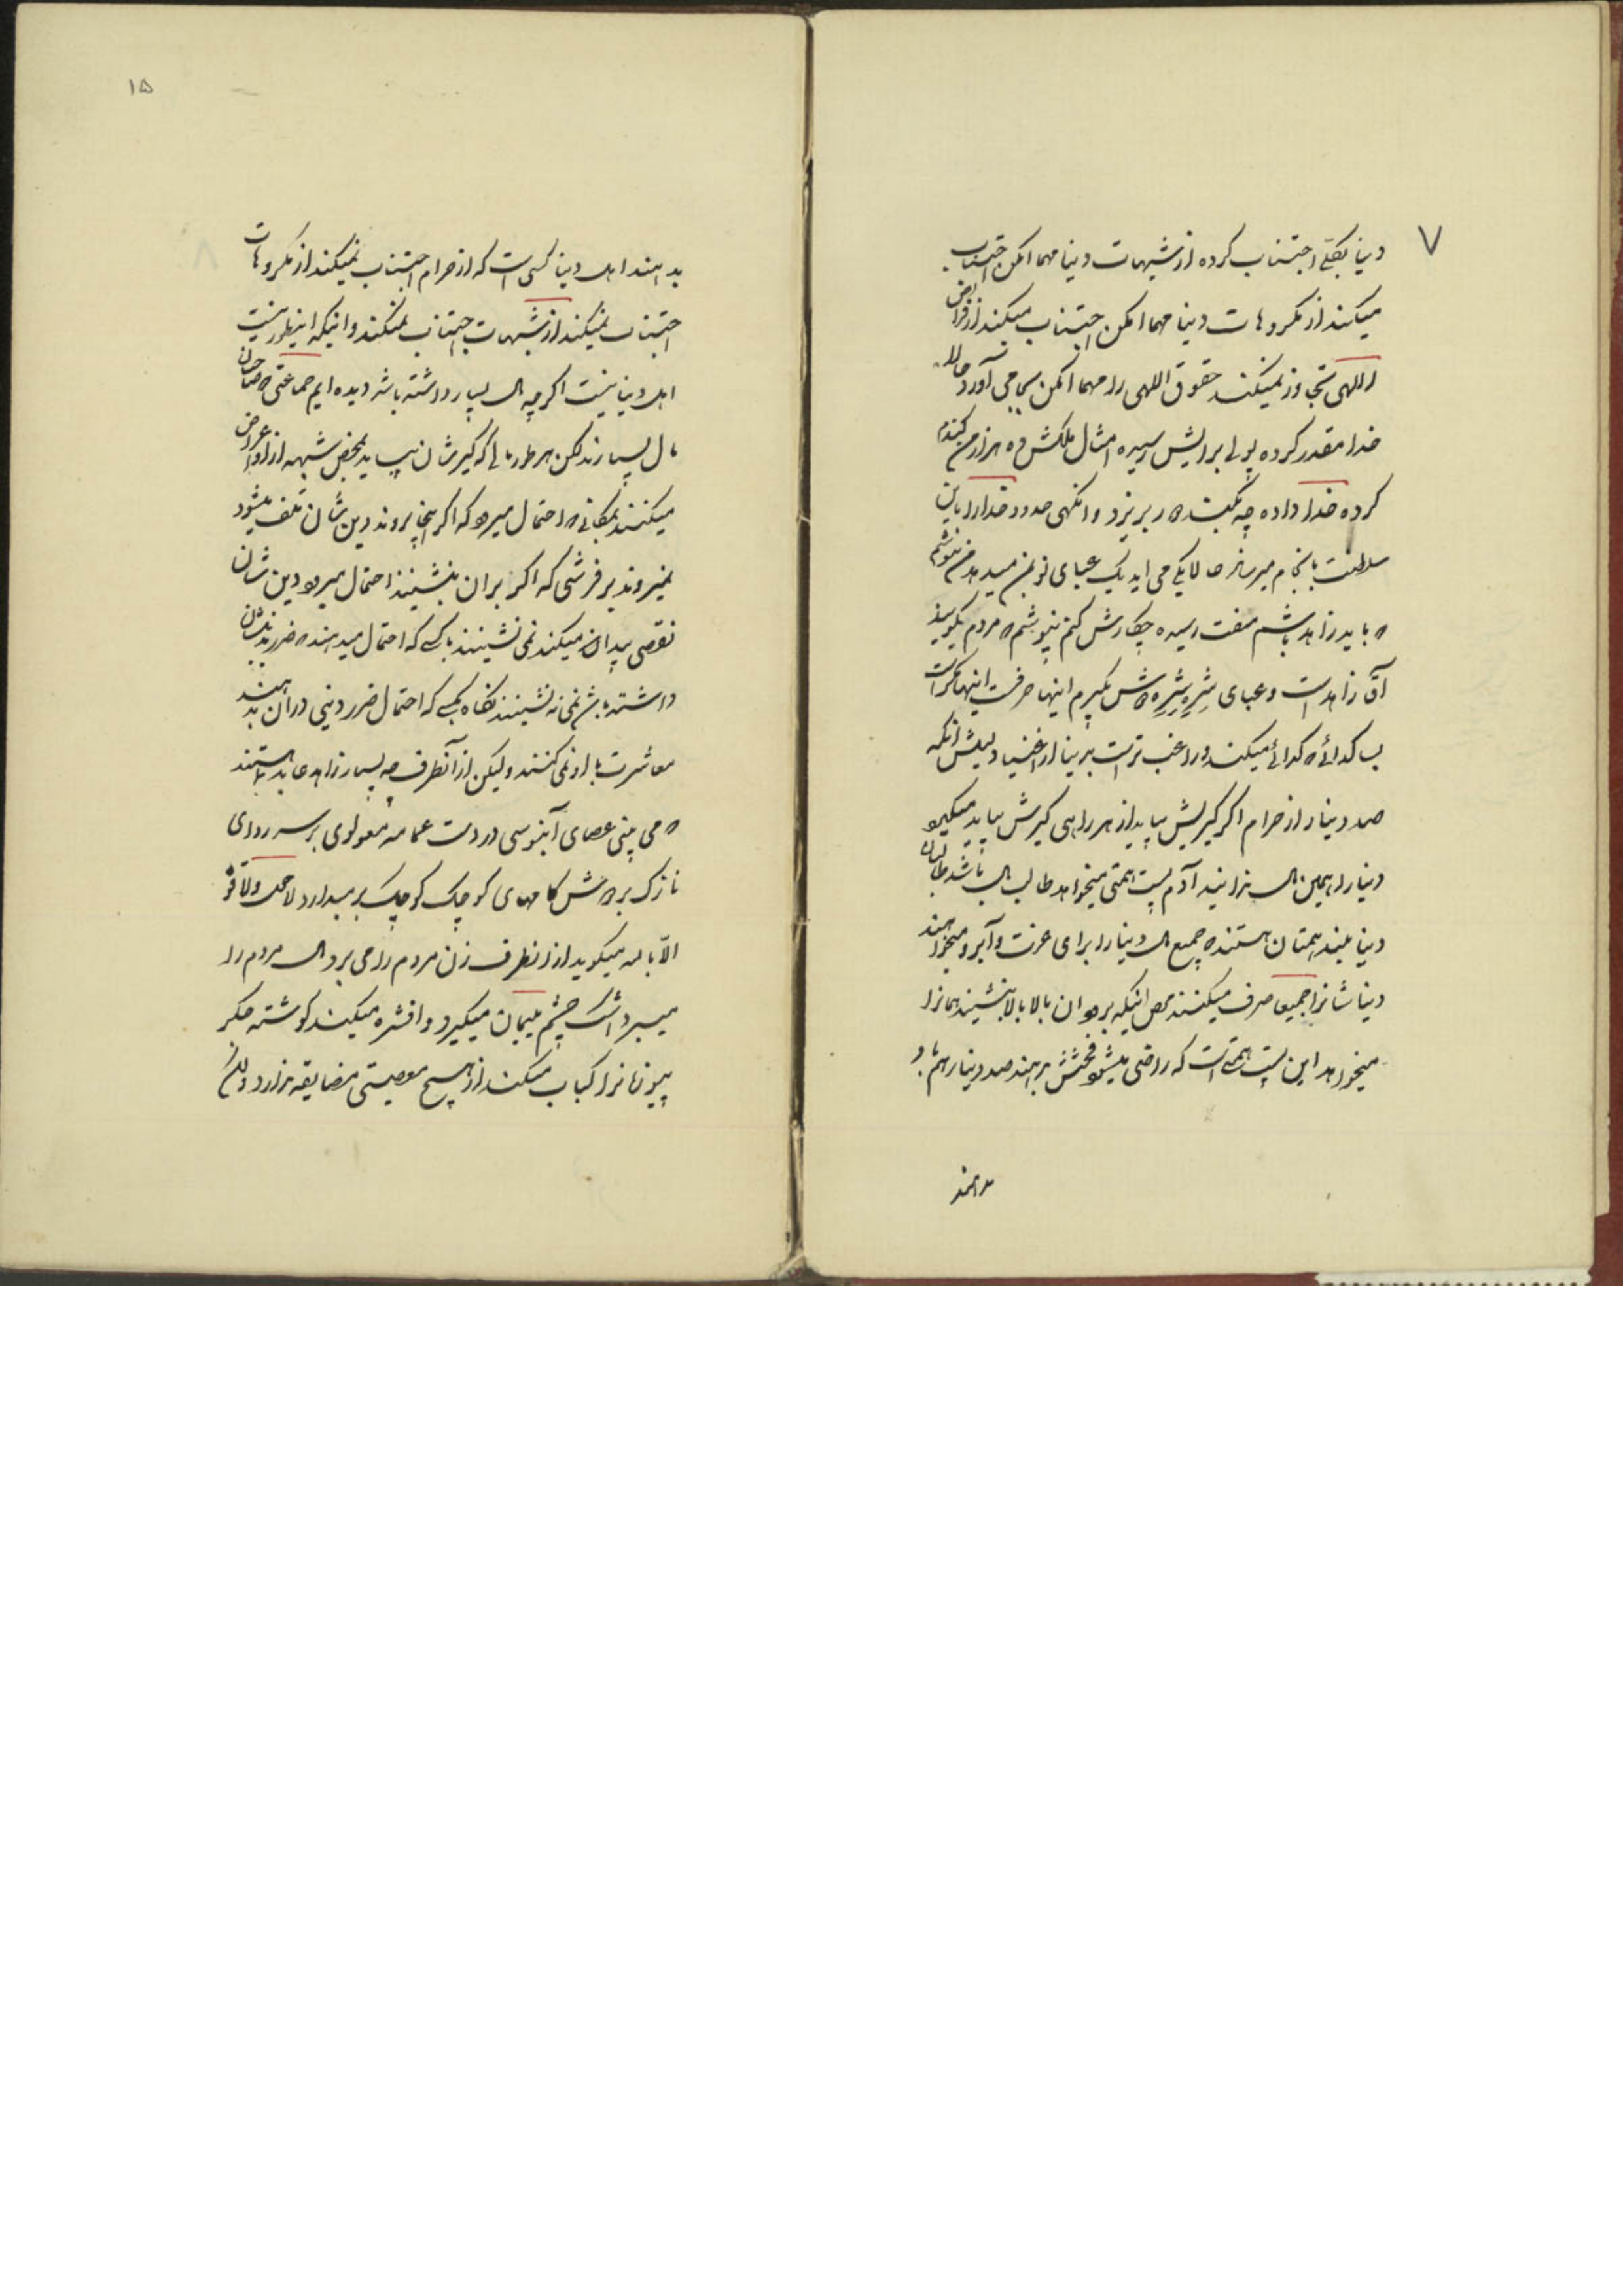 ۷
دنیا بکلی اجتناب کرده از شبهات دنیا مهما امکن اجتناب
میکند از مکروهات دنیا مهما امکن اجتناب میکند از فرایض
اللهی تجاوز نمیکند حقوق اللهی را مهما امکن بجا می آورد حالا
خدا مقدر کرده پولی برایش رسیده امثال ملکش ده هزار من گندم
کرده خدا داده چه بکند در بریزد و انگهی حدود خدا را باین
سلطنت بانجام میرساند حالا یکی می اید یک عبای نو بمن میدهد من نپوشم
که باید زاهد باشم مفت رسیده چکارش کنم نپوشم که مردم بگویند
آقا زاهد است و عبای شِرِه شِرِه دوش بگیرم اینها حرفست اینها مکر است
بسا گدائی که گدائی میکند و راغب تر است بدنیا از اغنیا دلیلش آنکه
صد دینار از حرام اگر گیرش بیاید از هر راهی گیرش بیاید میگیرد
دنیا را همین مال ندانید آدم پست همتی میخواهد طالب مال باشد طالبان
دنیا بلند همتان هستند که جمیع مال دنیا را برای عزت و آبرو میخواهند
دنیاشانرا جمیعا صرف میکنند محض اینکه بروند ان بالا بالا بنشینند همانرا
میخواهد این پست همتی است که راضی میشود فحشش بدهند صد دینارهم باو
بدهند
۱۵
بدهند اهل دنیا کسی است که از حرام اجتناب نمیکند از مکروهات
اجتناب نمیکند از شبهات اجتناب نمیکند و انیکه اینطور نیست
اهل دنیا نیست اگرچه مال بسیار داشته باشد دیده ایم جماعتی که صاحبان
مال بسیارند لکن هر طور مالی که گیرشان بیاید بمحض شبهه از او اعراض
میکنند بمکانی که احتمال میرود که اگر اینجا بروند دین شان تلف میشود
نمیروند بر فرشی که اگر بران بنشینند احتمال میرود دین شان
نقصی پیدا میکند نمی نشینند با کسی که احتمال میدهند که ضرر بدینشان
داشته باشد نمی نشینند نگاه بکسی که احتمال ضرر دینی در آن بدهند
معاشرت با او نمی کنند ولیکن از آنطرف چه بسیار زاهد عابد هستند
که می بینی عصای آبنوسی در دست عمامه مغولوی بر سر ردای
نازک بر دوش گامهای کوچک کوچک برمیدارد لا حول و لا قوة
الّا بالله میگوید از انطرف زن مردم را می برد مال مردم را
میبرد اشک چشم یتیمان میگیرد و افشره میکند گوشته جگر
بیوزنانرا کباب میکند از هیچ معصیتی مضایقه ندارد و لکن